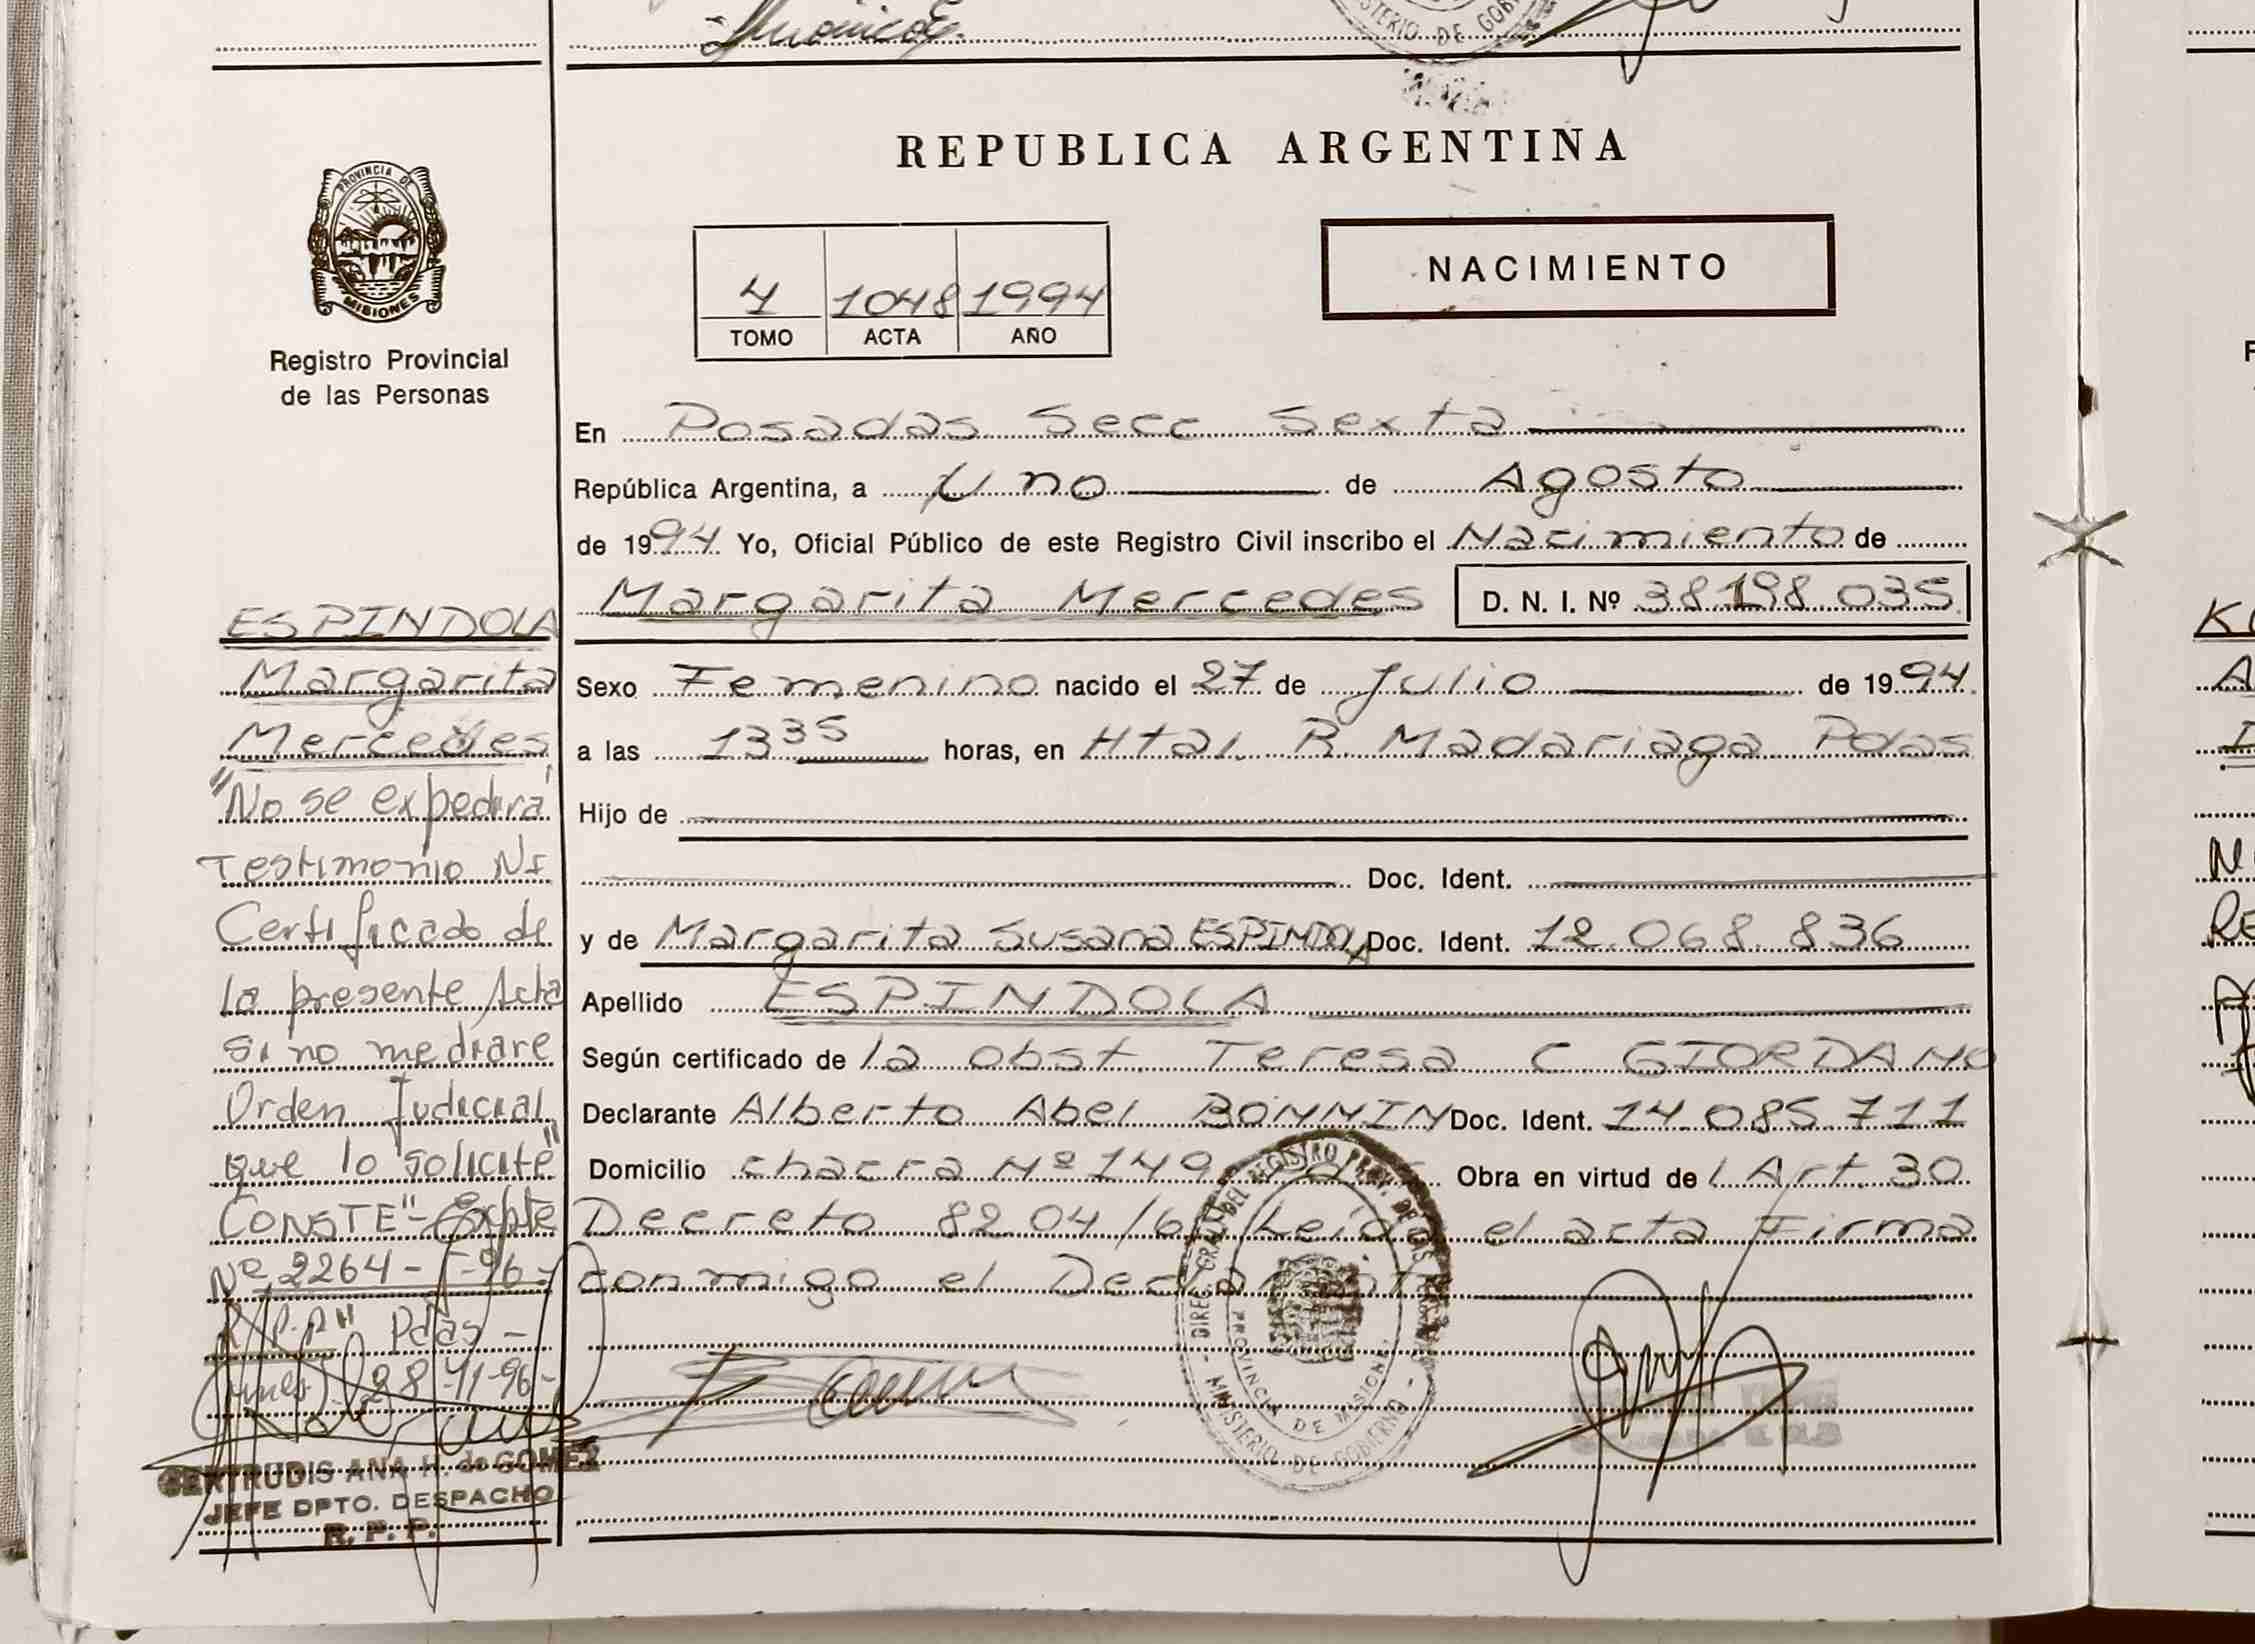 MINISTERIO DE GOB
REPUBLICA ARGENTINA
PROVINCIA DE
MISIONES
Registro Provincial
de las Personas
4 1048 1994
TOMO ACTA AÑO
NACIMIENTO
En Posadas Secc Sexta
República Argentina, a Uno de Agosto
de 1994 Yo, Oficial Público de este Registro Civil inscribo el Nacimiento de
Margarita Mercedes D. N. I. Nº 38198.035
Sexo Femenino nacido el 27 de Julio de 1994
a las 13 35 horas, en Htal. R. Madariaga Pdas
Hijo de
Doc. Ident.
y de Margarita Susana ESPINDOLA Doc. Ident. 12.068.836
Apellido ESPINDOLA
Según certificado de la obst. Teresa C GIORDANO
Declarante Alberto Abel BONMIN Doc. Ident. 14.085.711
Domicilio chacra Nº 149 Obra en virtud del Art. 30
Decreto 8204/6 Leída el acta Firma
conmigo el Declarante
DIREC. GRAL. DEL REGISTRO PROV. DE LAS PERSONAS
PROVINCIA DE MISIONES
- MINISTERIO DE GOBIERNO -
ESPINDOLA
Margarita
Mercedes
"No se expedirá
Testimonio Ni
Certificado de
la presente Acta
si no mediare
Orden Judicial
que lo solicite"
CONSTE"- Expte
Nº 2264- -96-
R.P.P" Pdas -
28-11-96-
GERTRUDIS ANA H. de GOMEZ
JEFE DPTO. DESPACHO
R. P. P.